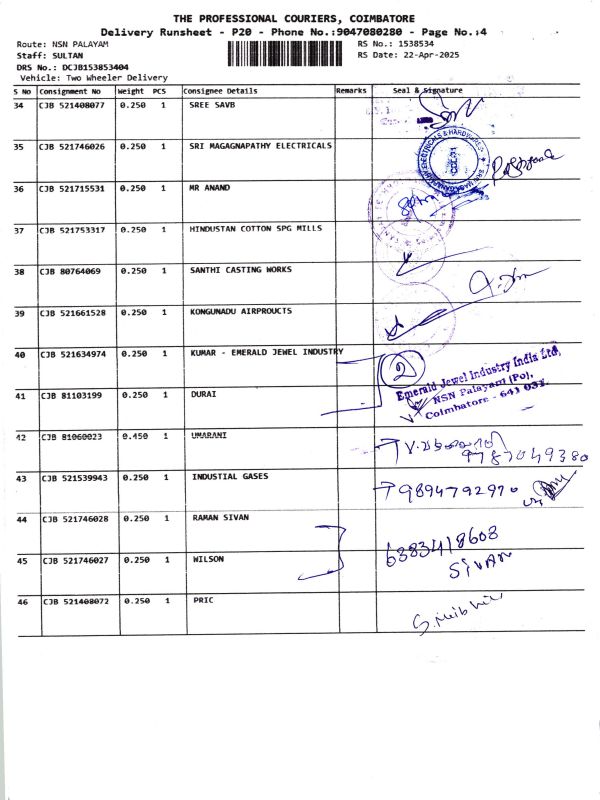 THE PROFESSIONAL COURIERS, COIMBATORE
Delivery Runsheet - P20 - Phone No.:9047080280 - Page No.:4
Route: NSN PALAYAM RS No.: 1538534
Staff: SULTAN RS Date: 22-Apr-2025
DRS No.: DCJB153853404
Vehicle: Two Wheeler Delivery
S No Consignment No Weight PCS Consignee Details Remarks Seal & Signature
34 CJB 521408077 0.250 1 SREE SAVB
35 CJB 521746026 0.250 1 SRI MAGAGNAPATHY ELECTRICALS
36 CJB 521715531 0.250 1 MR ANAND
37 CJB 521753317 0.250 1 HINDUSTAN COTTON SPG MILLS
38 CJB 80764069 0.250 1 SANTHI CASTING WORKS
39 CJB 521661528 0.250 1 KONGUNADU AIRPROUCTS
40 CJB 521634974 0.250 1 KUMAR - EMERALD JEWEL INDUSTRY 2
Emerald Jewel Industry India Ltd,
NSN Palayam (Po),
Coimbatore - 641 031.
41 CJB 81103199 0.250 1 DURAI
42 CJB 81060023 0.450 1 UMARANI
9787049380
43 CJB 521539943 0.250 1 INDUSTIAL GASES 9894792970
44 CJB 521746028 0.250 1 RAMAN SIVAN 6383418608
45 CJB 521746027 0.250 1 WILSON SIVAN
46 CJB 521408072 0.250 1 PRIC